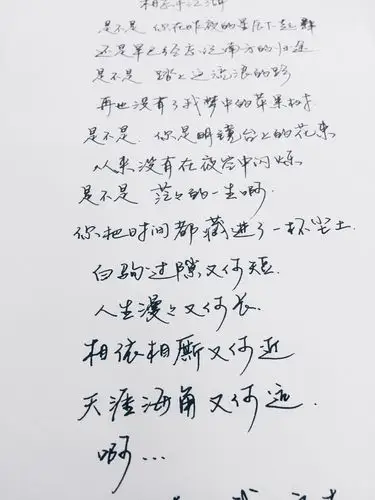 是不是 你在昨夜的星辰下起舞
还是早已经忘记南方的归途
是不是 踏上这流浪的路
再也没有了我梦中的苹果树
是不是 你是明镜台上的花束
从来没有在夜空中闪烁
是不是 茫々的一生啊
你把时间都藏进了一杯尘土
白驹过隙又何短
人生漫々又何长
相依相厮又何近
天涯海角又何远
啊…